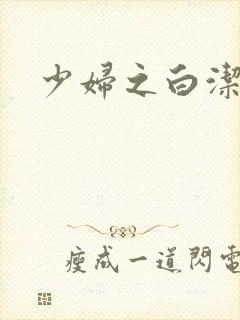 少婦之白潔
瘦成一道閃電